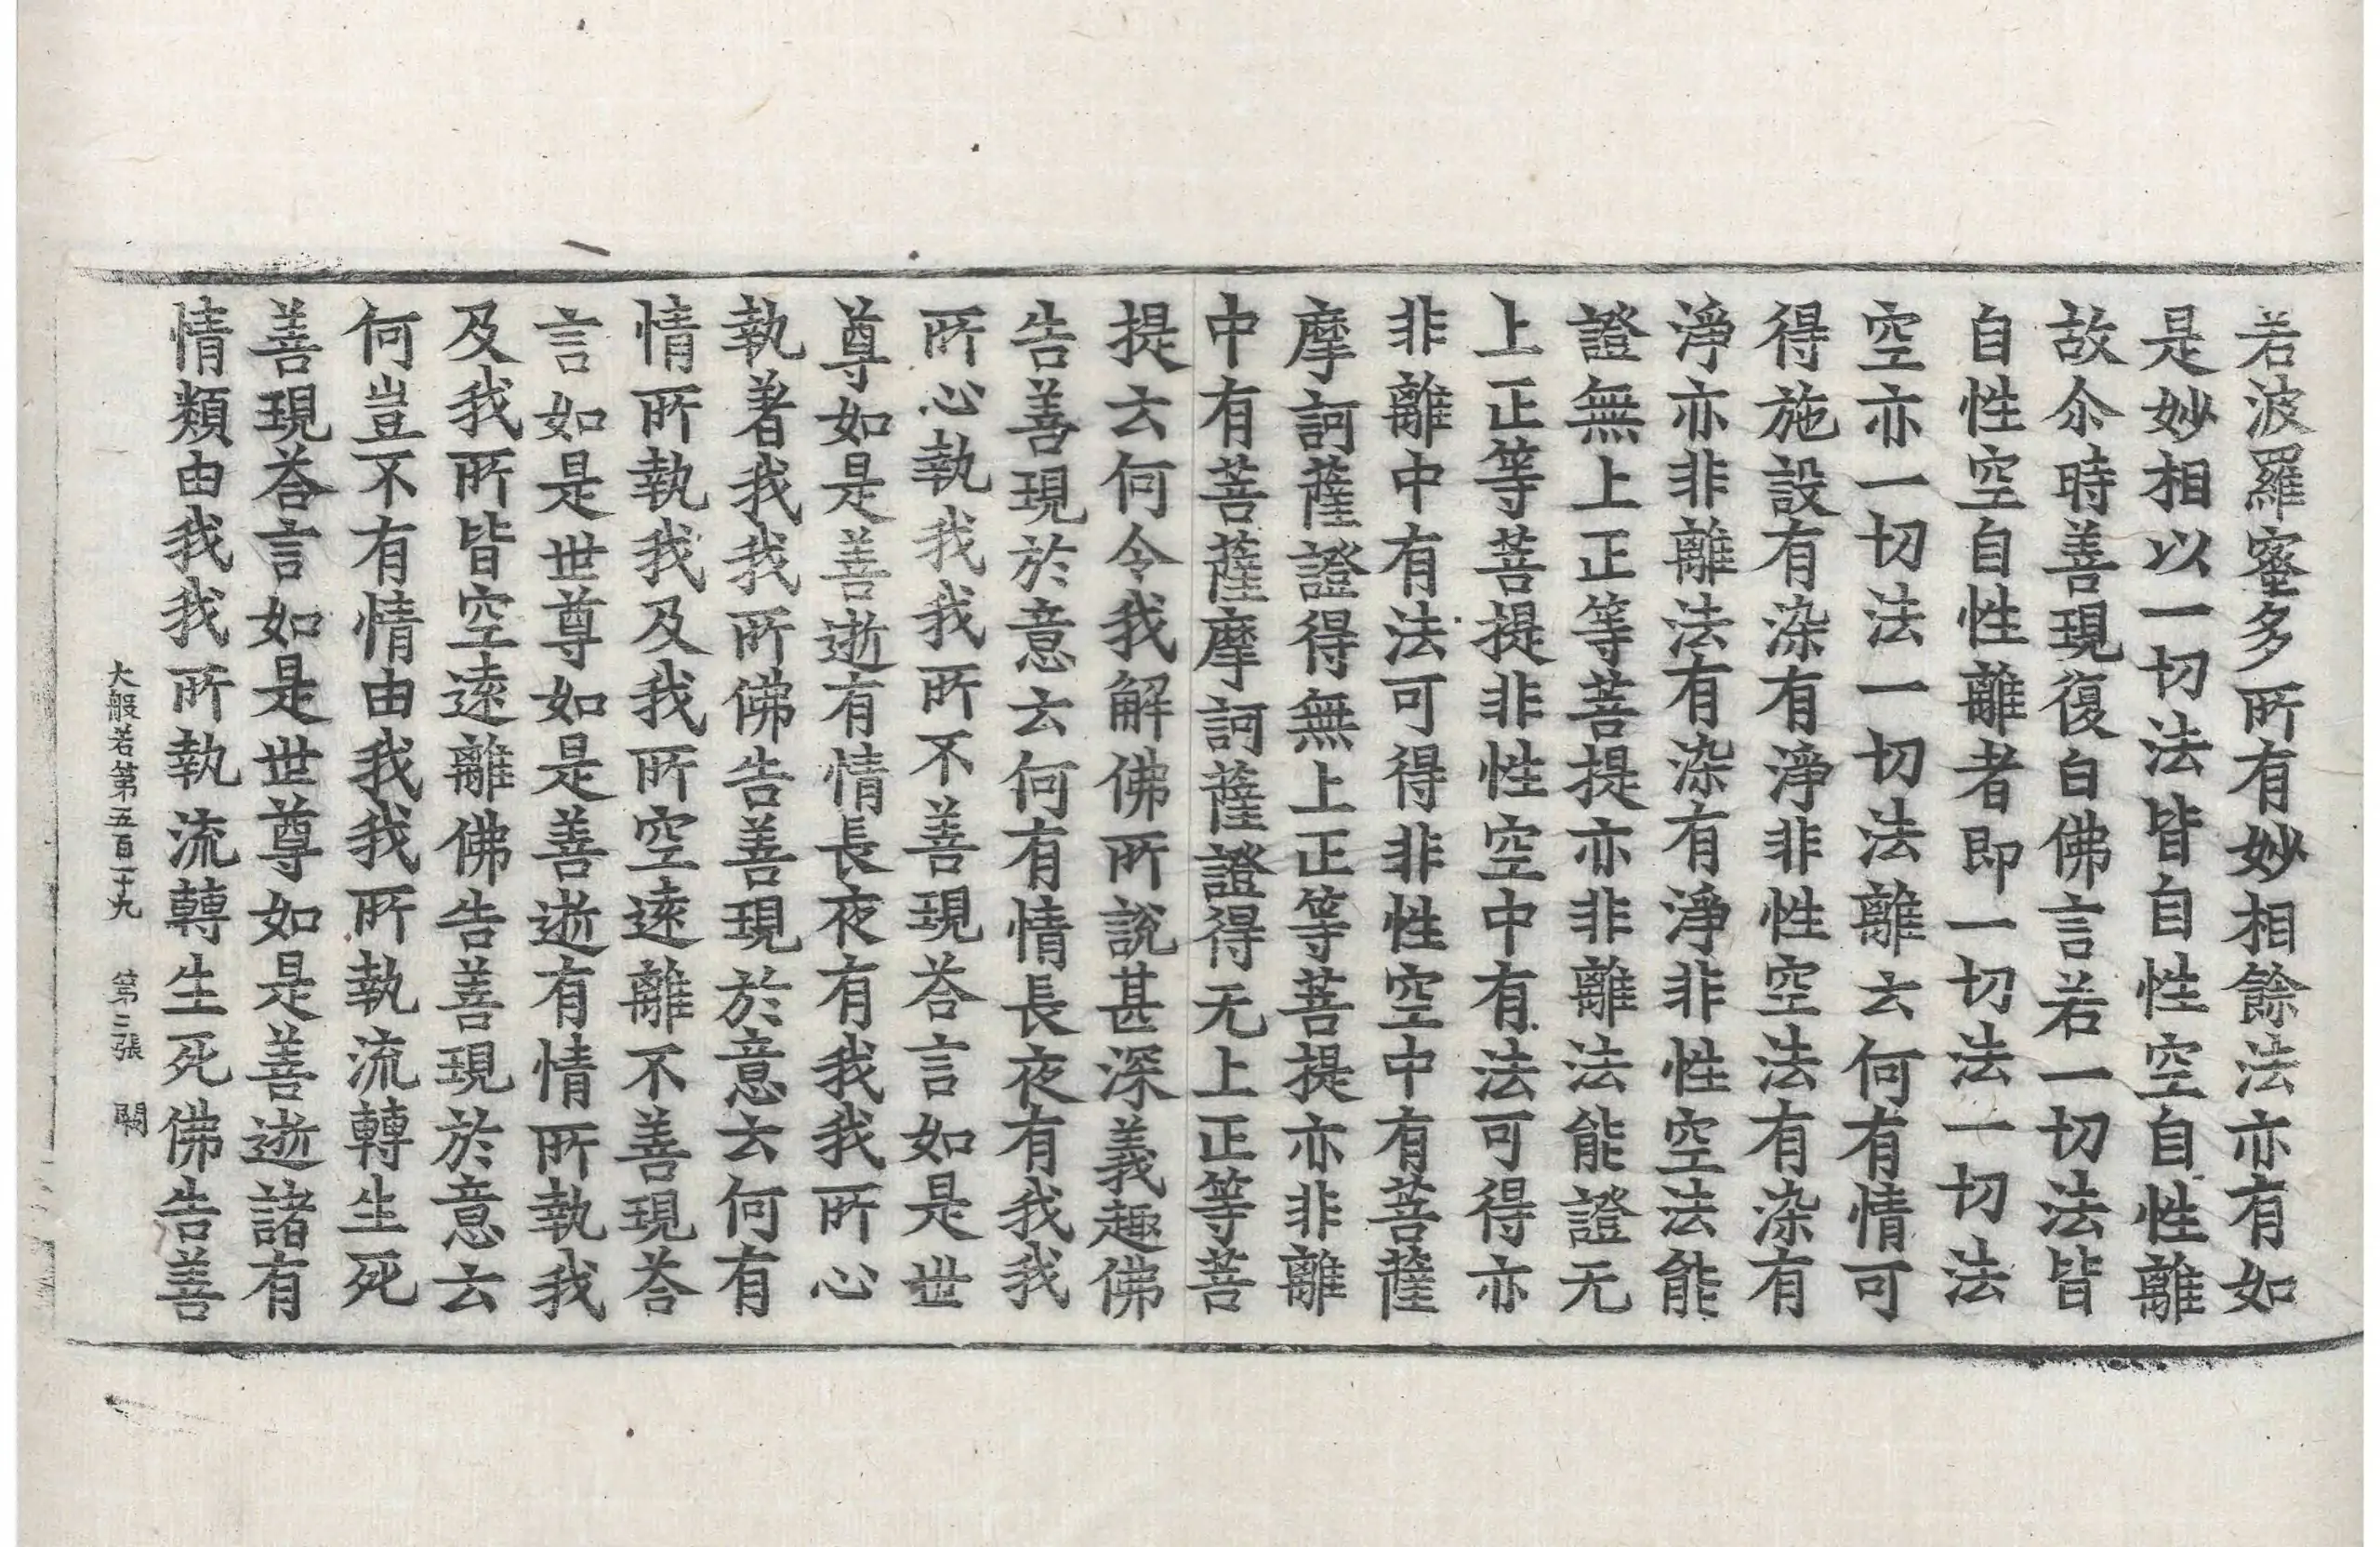 若波羅蜜多所有妙相餘法亦有如
是妙相以一切法皆自性空自性離
故尒時善現復白佛言若一切法皆
自性空自性離者即一切法一切法
空亦一切法一切法離云何有情可
得施設有染有淨非性空法有染有
淨亦非離法有染有淨非性空法能
證無上正等菩提亦非離法能證无
上正等菩提非性空中有法可得亦
非離中有法可得非性空中有菩薩
摩訶薩證得無上正等菩提亦非離
中有菩薩摩訶薩證得无上正等菩
提云何令我解佛所說甚深義趣佛
告善現於意云何有情長夜有我我
所心執我我所不善現荅言如是世
尊如是善逝有情長夜有我我所心
執著我我所佛告善現於意云何有
情所執我及我所空遠離不善現荅
言如是世尊如是善逝有情所執我
及我所皆空遠離佛告善現於意云
何豈不有情由我我所執流轉生死
善現荅言如是世尊如是善逝諸有
情類由我我所執流轉生死佛告善
大般若第五百二十九 第二張 闕